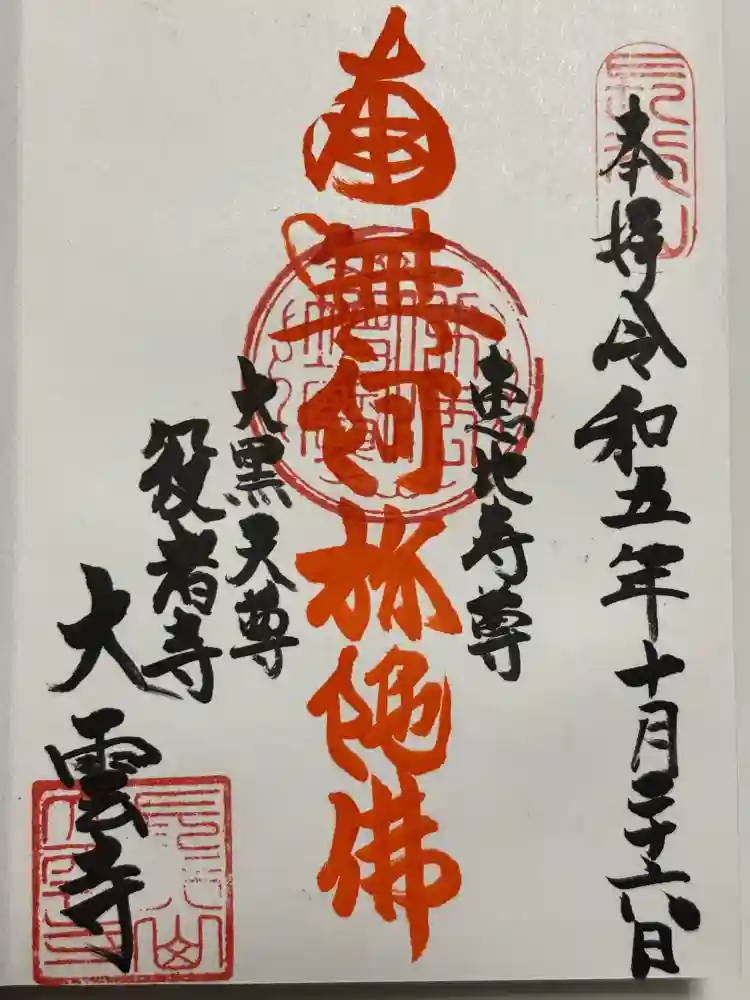 本拝令和五年十月二十六日
恵比寿尊
南無阿弥陀佛
大黒天尊
役者寺
大雲寺